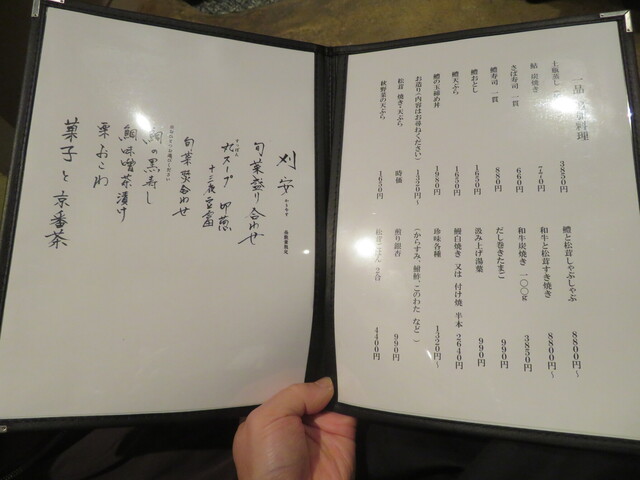 一品 料理
土瓶蒸し 3850円
鮎 炭焼き 770円
さば寿司 一貫 660円
鱧寿司 一貫 880円
鱧おとし 1650円
鱧天ぷら 1650円
鱧の玉締め丼 1980円
お造り(内容はお尋ねください) 1320円~
松茸 焼き・天ぷら 時価
秋野菜の天ぷら 1650円
鱧と松茸しゃぶしゃぶ 8800円~
和牛と松茸すき焼き 8800円~
和牛炭焼き 一〇〇g 3850円
だし巻きたまご 990円
汲み上げ湯葉 990円
鰻白焼き 又は 付け焼 半本 2640円
珍味各種 1320円~
(からすみ、鮒鮓、このわた など)
煎り銀杏 990円
4400円
刈安
旬菜盛り合わせ
スープ
十三夜豆富
旬菜炊合わせ
鯛の黒寿し
鯛味噌茶漬け
栗おこわ
菓子と京番茶